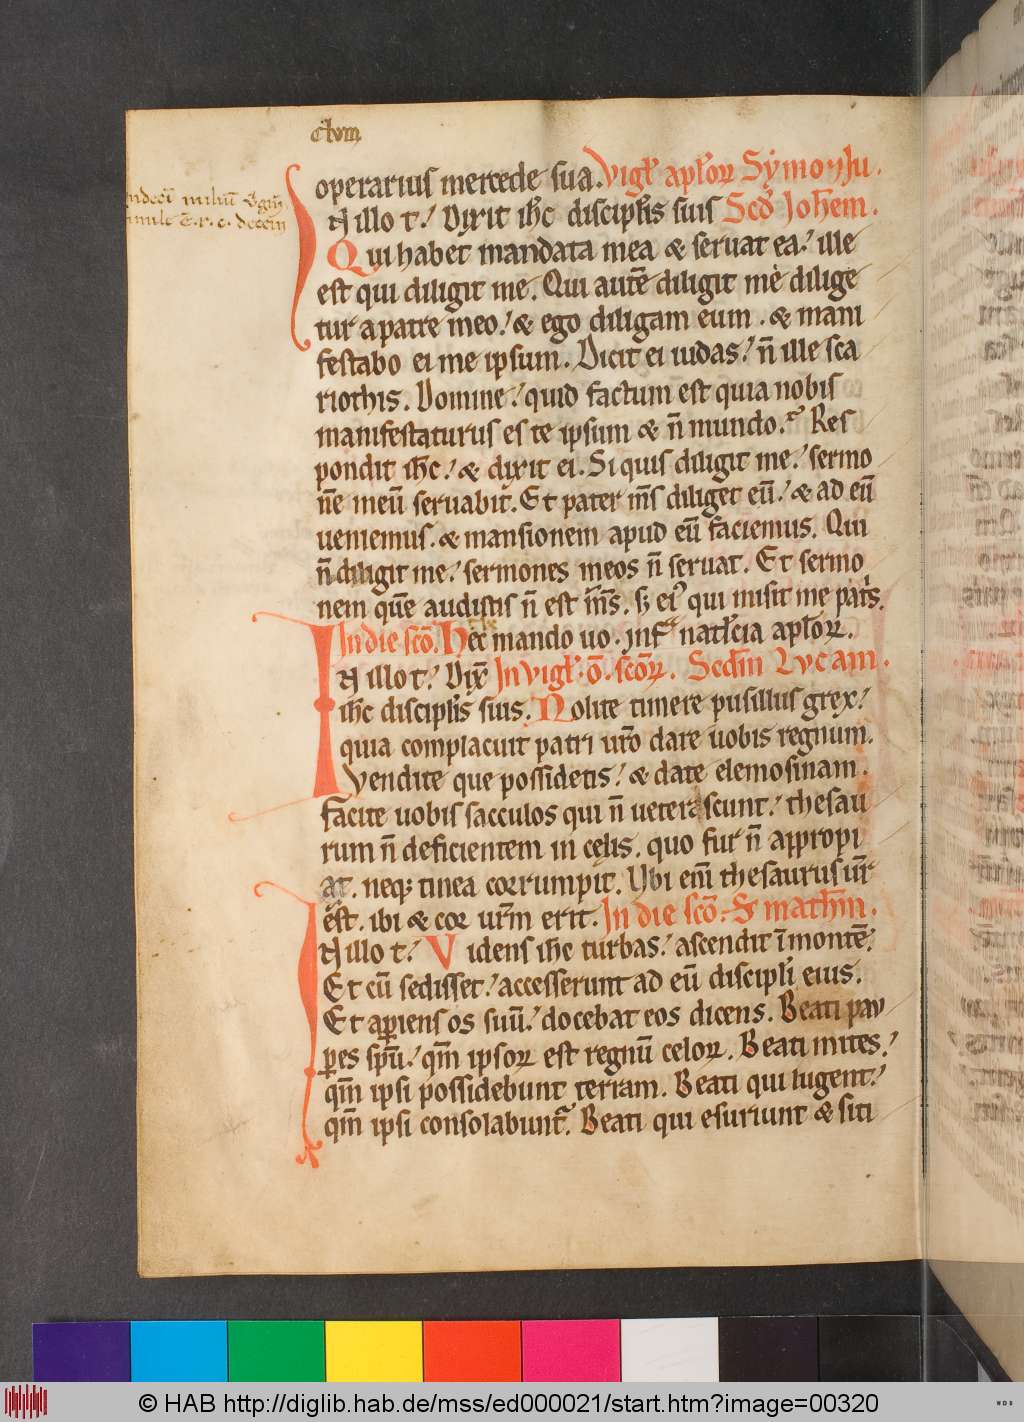 operarius mercede sua. Vigł apłoꝝ Symon Ju.
N illo t̄. Dixit ihc̄ discipłis suis Scd̄ Johem̄.
Qui habet mandata mea & seruat ea: ille
est qui diligit me. Qui autē diligit me dilige
tur a patre meo: & ego diligam eum. & mani
festabo ei me ipsum. Dicit ei iudas: n̄ ille sca
riothis. Domine: quid factum est quia nobis
manifestaturus es te ipsum & n̄ mundo. Res
pondit ihc̄: & dixit ei. Si quis diligit me: sermo
nē meū seruabit. Et pater m̄s diliget eū: & ad eū
ueniemus. & mansionem apud eū faciemus. Qui
n̄ diligit me: sermones meos n̄ seruat. Et sermo
nem quē audistis n̄ est m̄s. sꝫ ei' qui misit me patris.
In die scō. Hec mando uo. jnf natłcia apłoꝝ.
N illo t̄. Dix̄ In vigł. ō. scōꝝ. Scdm̄ Lvcam.
ihc̄ discipłis suis. Nolite timere pusillus grex:
quia complacuit patri ur̄o dare uobis regnum.
Vendite que possidetis: & date elemosinam.
facite uobis sacculos qui n̄ ueterascunt: thesau
rum n̄ deficientem in celis. quo fur n̄ appropi
at. neqꝫ tinea corrumpit. Vbi enī thesaurus ur̄
est. ibi & cor urm̄ erit. In die scō. S mathm̄.
N illo t̄. Videns ihc turbas: ascendit ī montē.
Et cū sedisset: accesserunt ad eū discipłi eius.
Et apiens os suū: docebat eos dicens. Beati pav
ꝑes spū: qm̄ ipsoꝝ est regnū celoꝝ. Beati mites:
qm̄ ipsi possidebunt terram. Beati qui lugent:
qm̄ ipsi consolabunt̄. Beati qui esuriunt & siti
© HAB http://diglib.hab.de/mss/ed000021/start.htm?image=00320